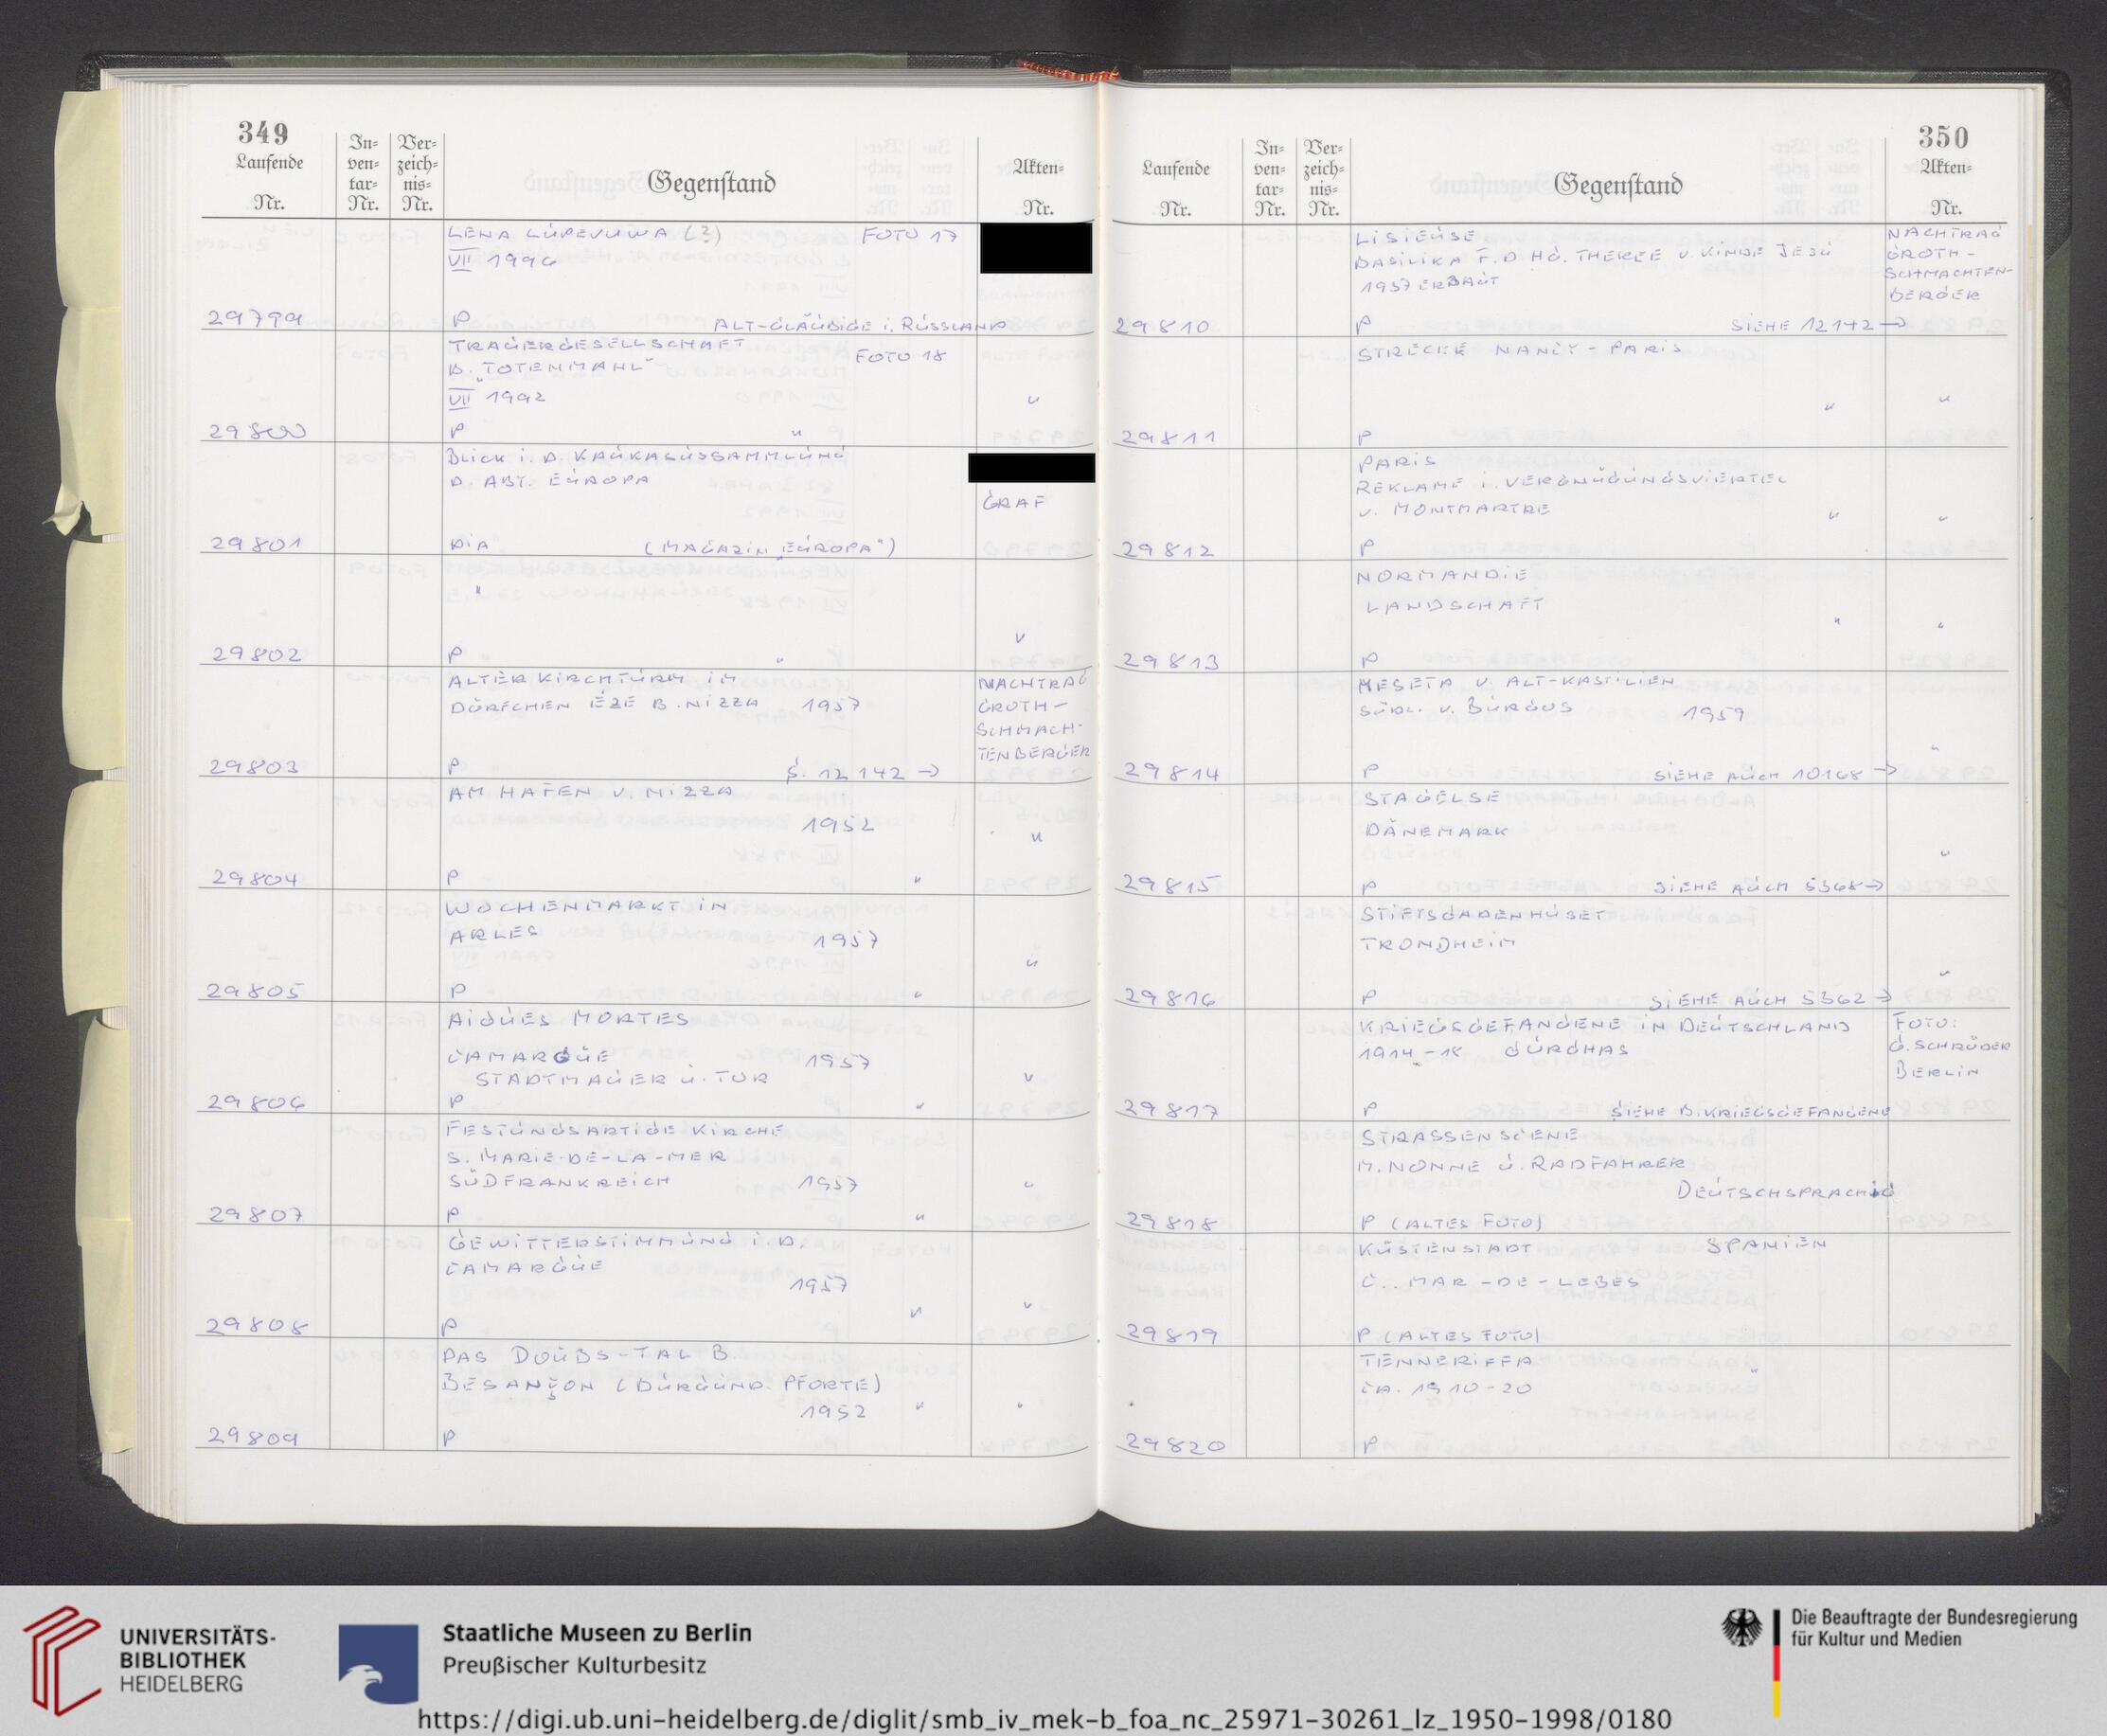 349
Laufende
Nr.
In-
ven-
tar-
Nr.
Ver-
zeich-
nis-
Nr.
Gegenstand
Akten-
Nr.
LENA FOTO 17
VII 1996
29799 P ALT-GLÄUBIGE i. RUSSLAND
TRAUERGESELLSCHAFT
B. „TOTENMAHL" FOTO 18
VII 1992 "
29800 P "
BLICK i. D. KAUKASUSSAMMLUNG
D. ABT. EUROPA
GRAF
29801 DIA (MAGAZIN „EUROPA")
"
"
29802 P "
ALTER KIRCHTURM IM NACHTRAG
DÖRFCHEN ÈZE B. NIZZA 1957 GROTH-
SCHMACH-
TENBERGER
29803 P S. 12142 →
AM HAFEN V. NIZZA
1952 "
29804 P "
WOCHENMARKT IN
ARLES 1957
"
29805 P "
AIGUES MORTES
CAMARGUE 1957
STADTMAUER U. TOR "
29806 P "
FESTUNGSARTIGE KIRCHE
S. MARIE-DE-LA-MER
SÜDFRANKREICH 1957 "
29807 P "
GEWITTERSTIMMUNG i. D.
CAMARGUE
1957
" "
29808 P
DAS DOUBS-TAL B
BESANÇON (BURGUND. PFORTE)
1952 " "
29809 P
350
Laufende
Nr.
In-
ven-
tar-
Nr.
Ver-
zeich-
nis-
Nr.
Gegenstand
Akten-
Nr.
LISIEUSE NACHTRAG
BASILIKA F. D HG. THERESE V. KINDE JESU GROTH-
1937 ERBAUT SCHMACHTEN-
BERGER
29810 P SIEHE 12142 →
STRECKE NANCY - PARIS
" "
29811 P
PARIS
REKLAME i. VERGNÜGUNGSVIERTEL
V. MONTMARTRE " "
29812 P
NORMANDIE
LANDSCHAFT
" "
29813 P
MESETA V. ALT-KASTILIEN
SÜDL. V. BURGOS 1959
"
29814 P SIEHE AUCH 10168 →
STAGELSE
DÄNEMARK
"
29815 P SIEHE AUCH 5368 →
STIFTSGADENHUSET
TRONDHEIM
"
29816 P SIEHE AUCH 5362 →
KRIEGSGEFANGENE IN DEUTSCHLAND FOTO:
1914-18 GURGHAS G. SCHRÖDER
BERLIN
29817 P SIEHE B. KRIEGSGEFANGENE
STRASSENSCENE
M. NONNE U. RADFAHRER
DEUTSCHSPRACHIG
29818 P (ALTES FOTO)
KÜSTENSTADT SPANIEN
C.. MAR-DE-LEBES
29819 P (ALTES FOTO)
TENNERIFFA "
CA. 1910-20
29820 P
UNIVERSITÄTS-
BIBLIOTHEK
HEIDELBERG
Staatliche Museen zu Berlin
Preußischer Kulturbesitz
Die Beauftragte der Bundesregierung
für Kultur und Medien
https://digi.ub.uni-heidelberg.de/diglit/smb_iv_mek-b_foa_nc_25971-30261_lz_1950-1998/0180